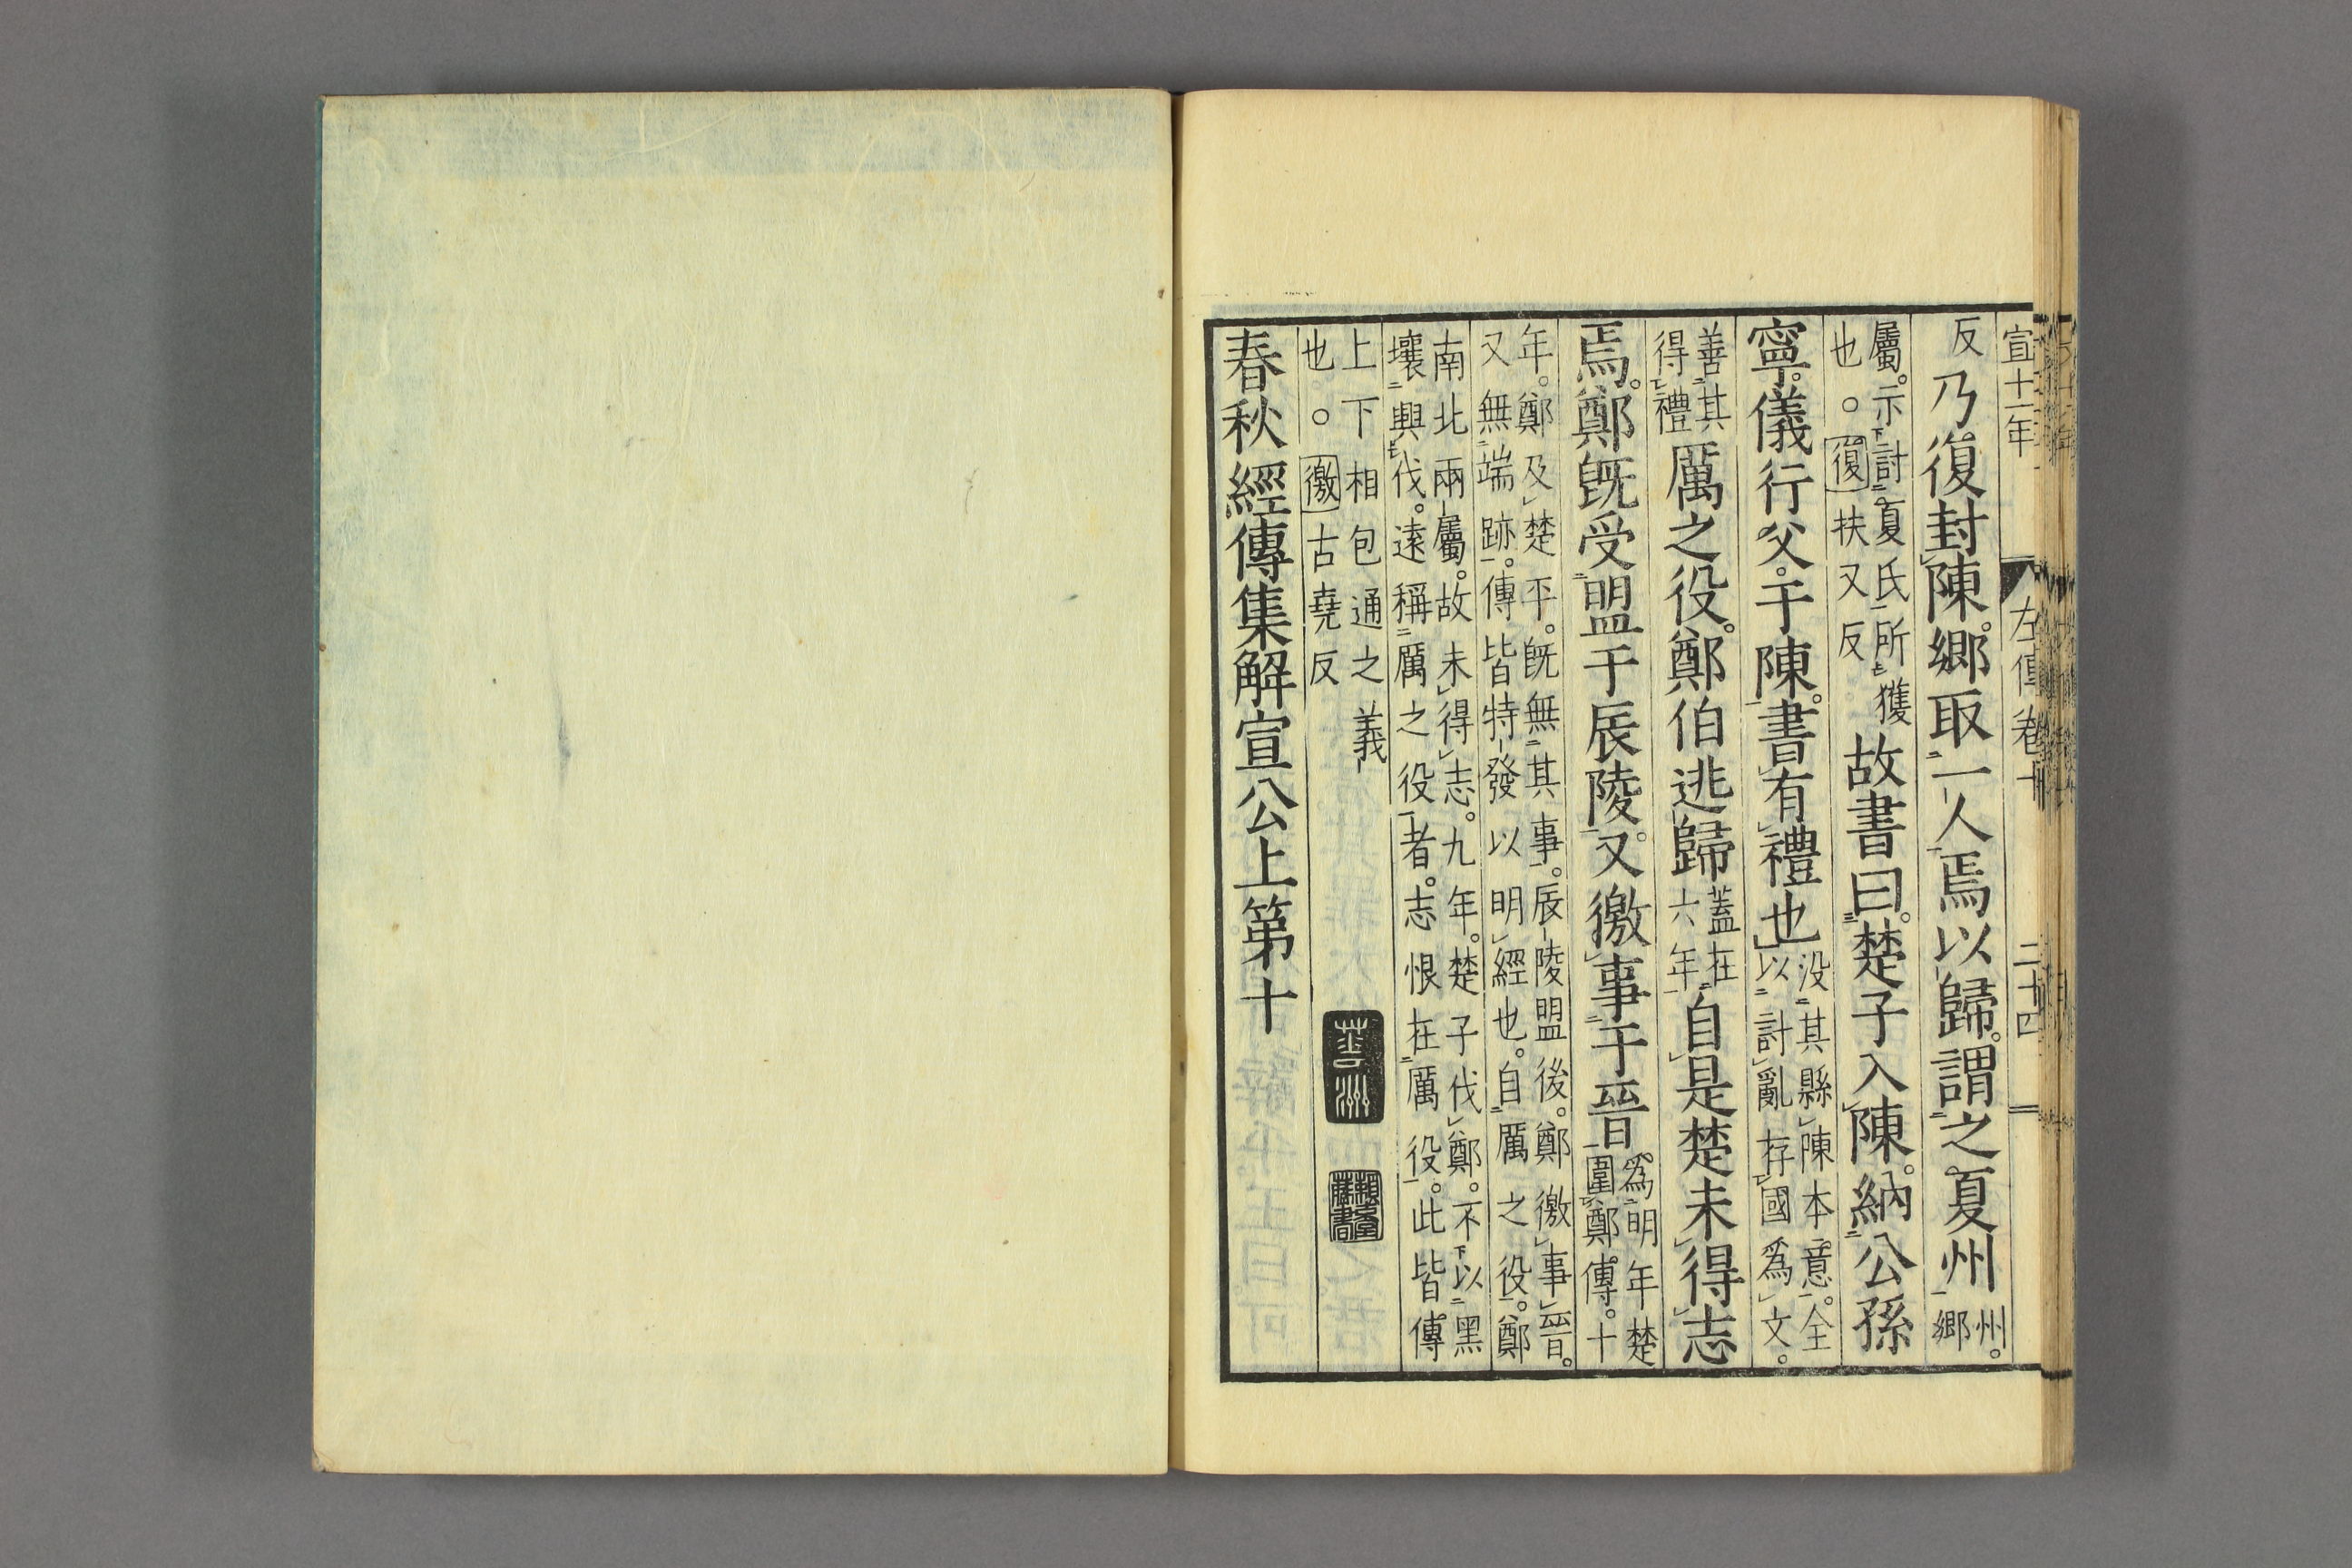 宣十一年 左傳卷十 二十四
反乃復封陳。鄉取一人焉以歸。謂之夏州州。鄉
屬。示討夏氏所獲也。○復扶又反故書曰。楚子入陳。納公孫
寧。儀行父。于陳。書有禮也没其縣陳本意。全以討亂存國爲文。
善其得禮厲之役。鄭伯逃歸蓋在六年自是楚未得志
焉。鄭旣受盟于辰陵。又徼事于晉。爲明年楚圍鄭傳。十
年。鄭及楚平。旣無其事。辰陵盟後。鄭徼事晉。又無端跡。傳皆特發以明經也。自厲之役。鄭
南北兩屬。故未得志。九年。楚子伐鄭。不以黑壤興伐。遠稱厲之役者。志恨在厲役。此皆傳
上下相包通之義也。○徼古堯反
芸洲
春秋經傳集解宣公上第十